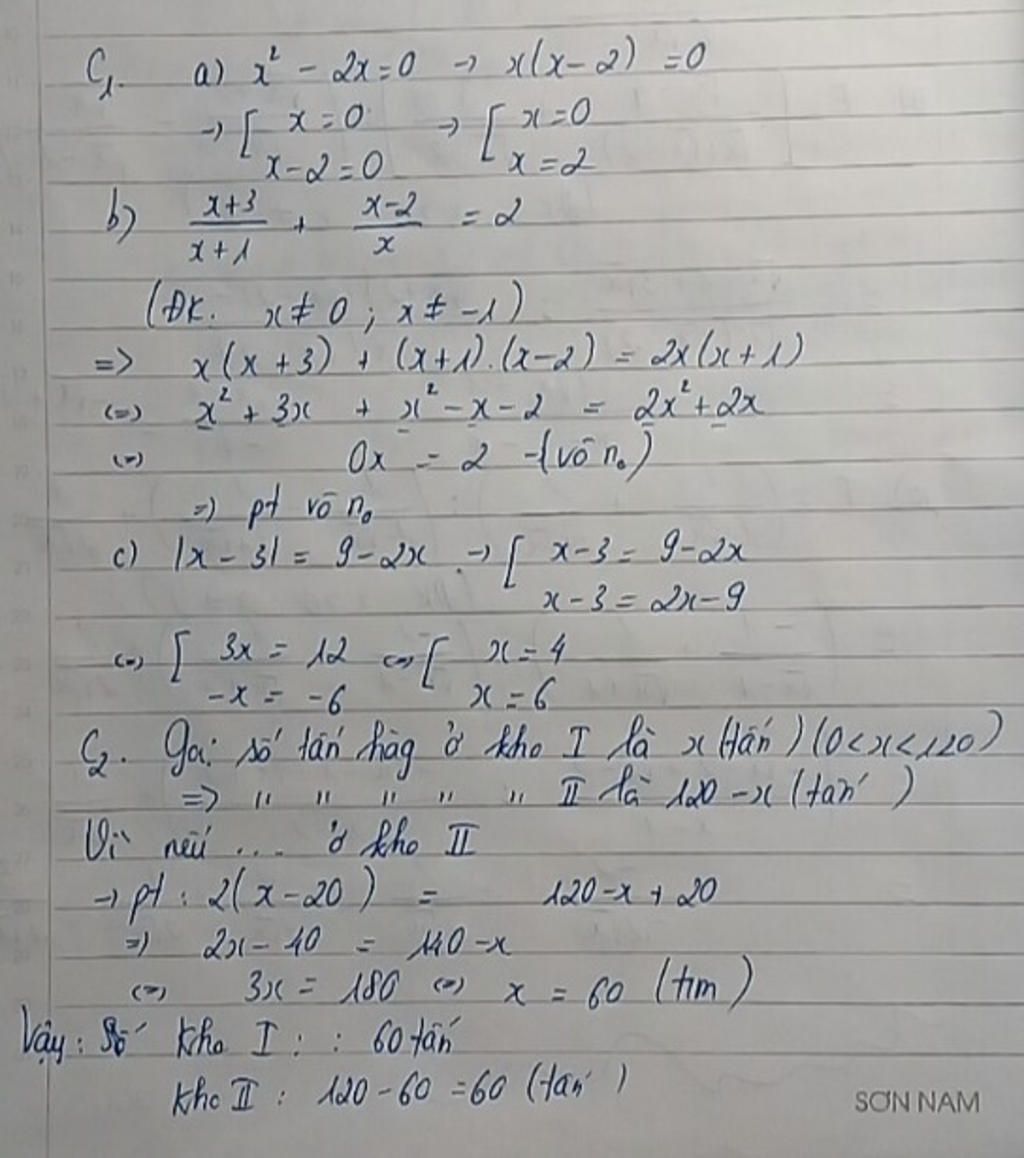 C₁. a) x² - 2x = 0 → x(x - 2) = 0
→ [ x = 0 → [ x = 0
x - 2 = 0 x = 2
b) (x+3)/(x+1) + (x-2)/x = 2
(ĐK. x ≠ 0 ; x ≠ -1)
=> x(x + 3) + (x+1).(x-2) = 2x(x+1)
(=) x² + 3x + x² - x - 2 = 2x² + 2x
(=) 0x = 2 -(vô n₀)
=) pt vô n₀
c) |x - 3| = 9 - 2x → [ x - 3 = 9 - 2x
x - 3 = 2x - 9
(=) [ 3x = 12 (=) [ x = 4
-x = -6 x = 6
C₂. Gọi số tấn hàg ở kho I là x (tấn) (0 < x < 120)
=> " " " " " II là 120 - x (tấn)
Vì nếu .... ở kho II
→ pt : 2(x - 20) = 120 - x + 20
=) 2x - 40 = 140 - x
(=) 3x = 180 (=) x = 60 (tm)
Vậy : Số kho I : : 60 tấn
kho II : 120 - 60 = 60 (tấn)
SƠN NAM